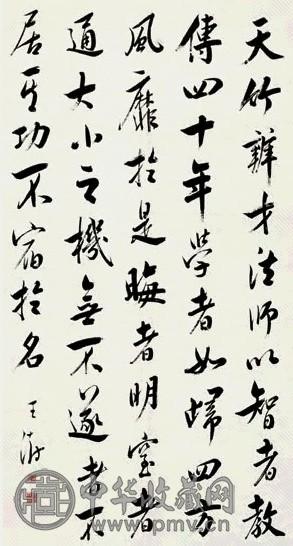 天竹辯才法師以智者教
傳四十年學者如歸四方
風靡於是晦者明窒者
通大小之機無不遂者不
居其功不宿於名 王澍
中华收藏网
www.pmv.cn